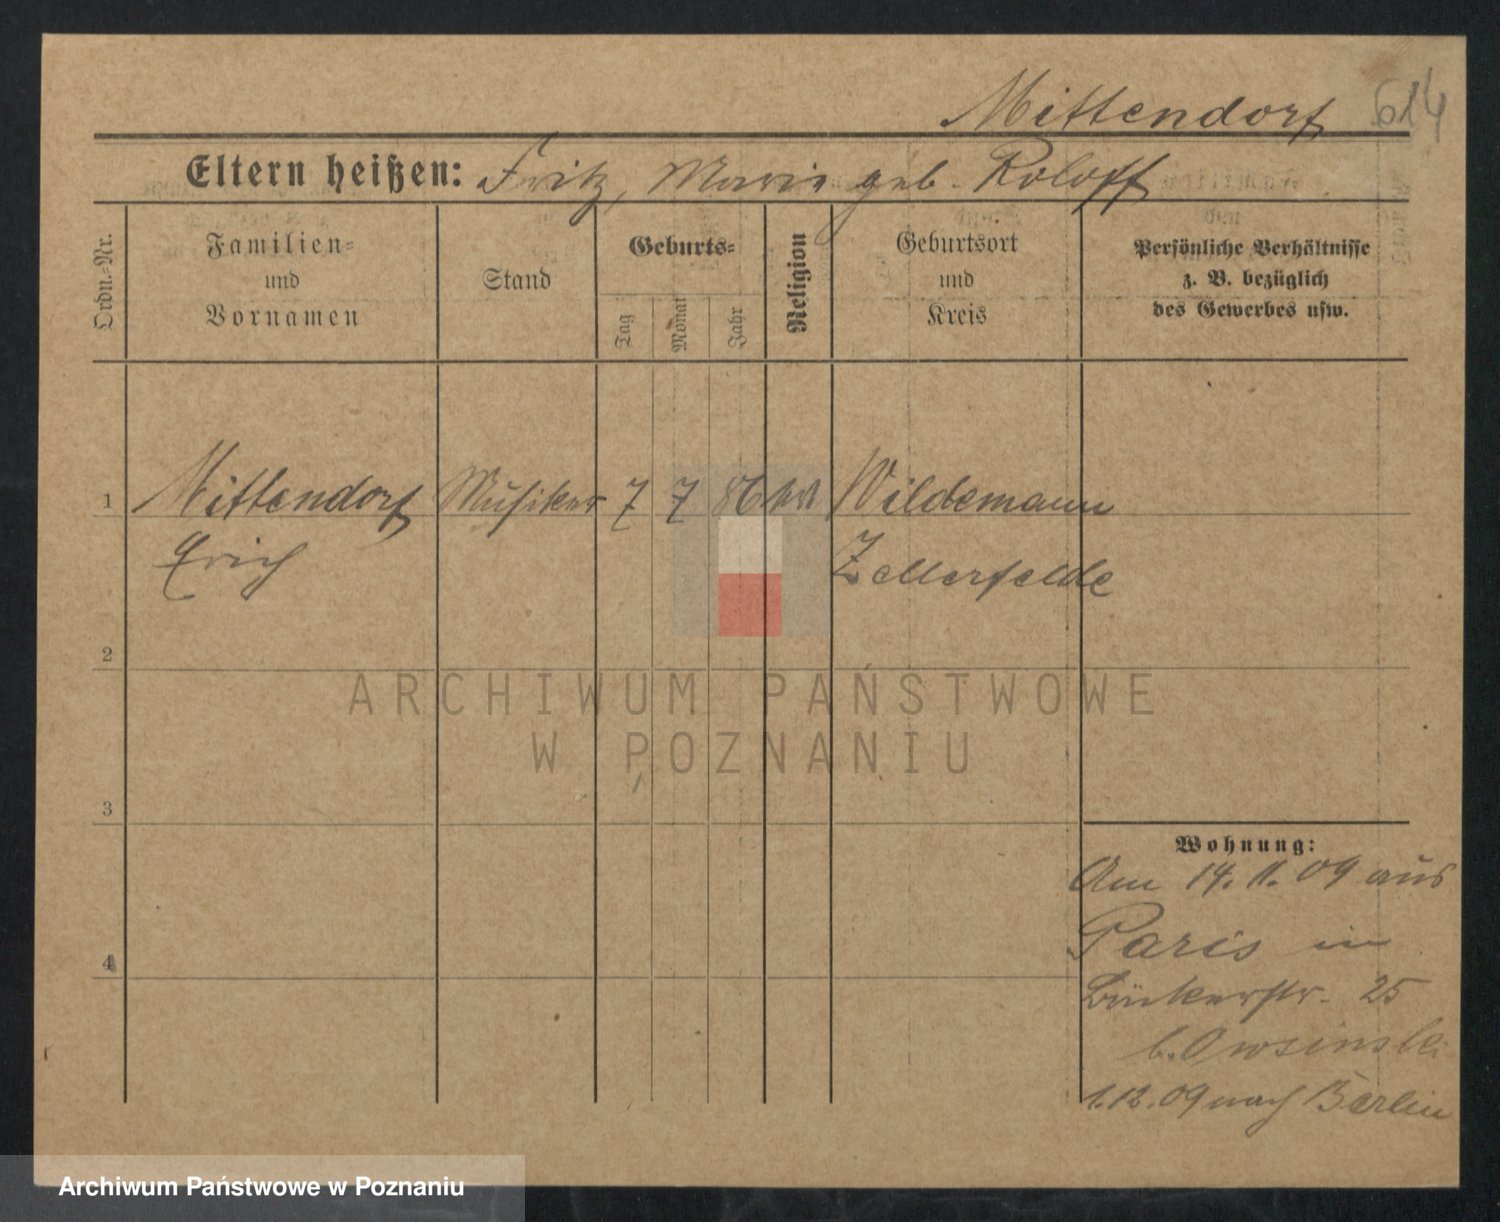 Mittendorf 614
Eltern heißen: Fritz, Marie geb. Roloff
Ordn.-Nr.
Familien-
und
Vornamen
Stand
Geburts-
Tag
Monat
Jahr
Religion
Geburtsort
und
Kreis
Persönliche Verhältnisse
z. B. bezüglich
des Gewerbes usw.
1 Mittendorf Musiker 7 7 86 Wildemann
Erich Zellerfelde
2
ARCHIWUM PAŃSTWOWE
W POZNANIU
3
Wohnung:
Am 14. 11. 09 aus
Paris in
4
Bückerstr. 25
b. Owsinski
1.12.09 nach Berlin
Archiwum Państwowe w Poznaniu